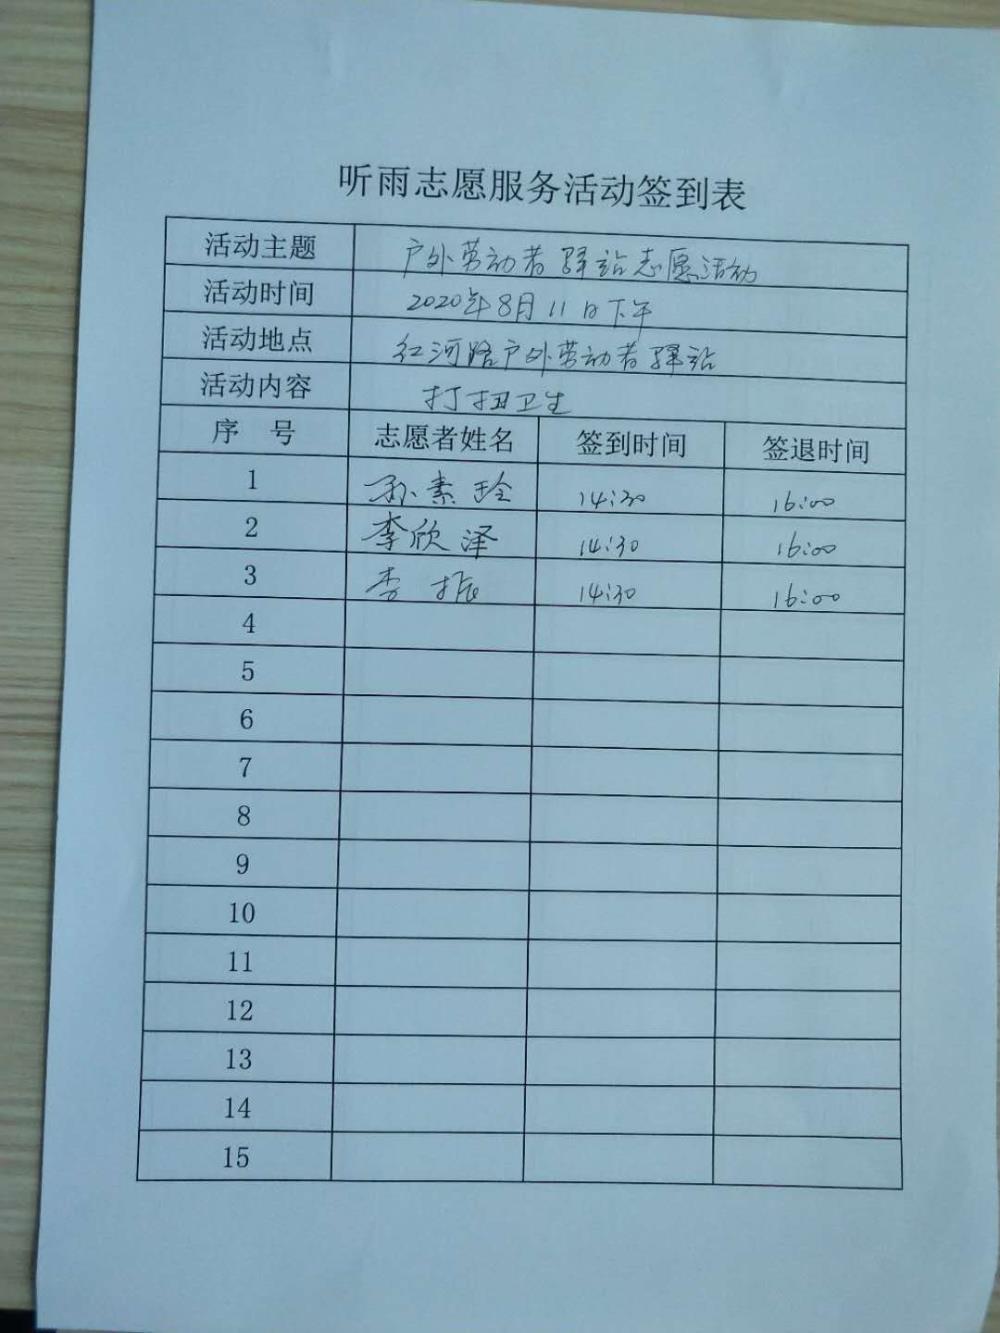 听雨志愿服务活动签到表
活动主题 户外劳动者驿站志愿活动
活动时间 2020年8月11日下午
活动地点 红河路户外劳动者驿站
活动内容 打扫卫生
序 号 志愿者姓名 签到时间 签退时间
1 孙素玲 14:30 16:00
2 李欣泽 14:30 16:00
3 李振 14:30 16:00
4
5
6
7
8
9
10
11
12
13
14
15